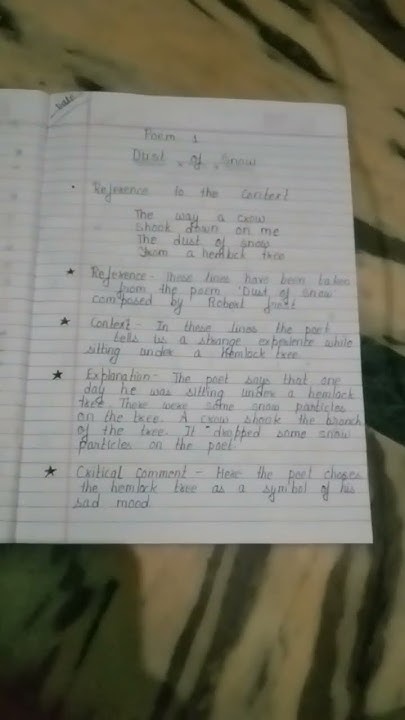 Date
Poem 1
Dust of Snow
Reference to the Context
The way a crow
Shook down on me
The dust of snow
From a hemlock tree
★ Reference - These lines have been taken
from the poem 'Dust of snow
composed by Robert frost
★ Context - In these lines the poet
tells us a strange experience while
sitting under a Hemlock tree
★ Explanation - The poet says that one
day he was sitting under a hemlock
tree There were some snow particles
on the tree. A crow shook the branch
of the tree. It dropped some snow
particles on the poet
★ Critical Comment - Here the poet choses
the hemlock tree as a symbol of his
sad mood